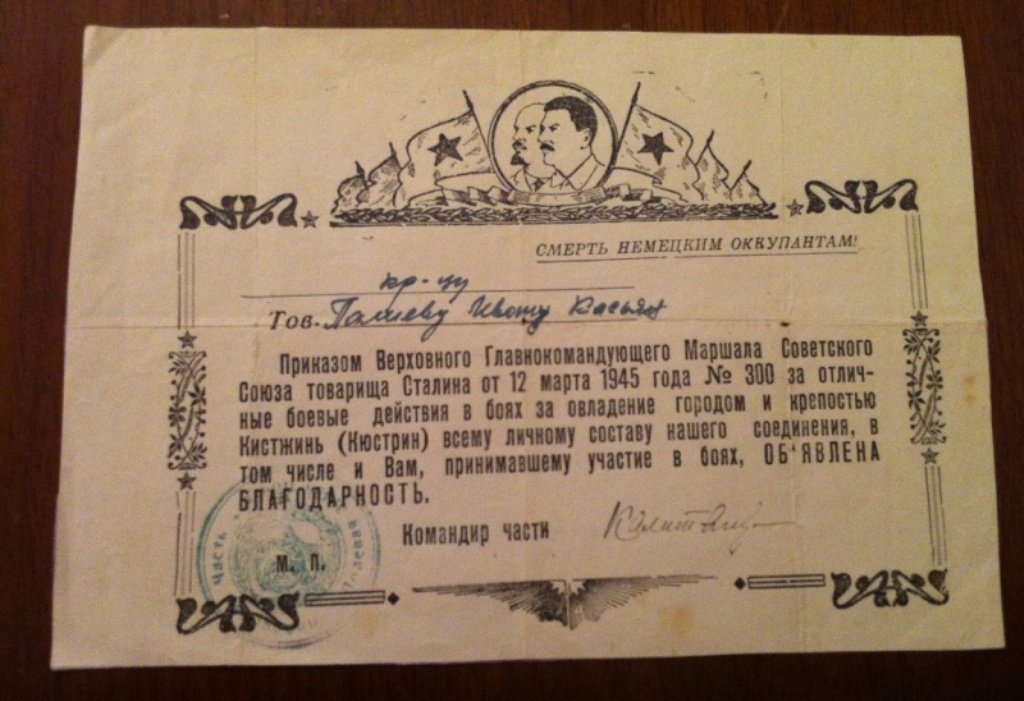 СМЕРТЬ НЕМЕЦКИМ ОККУПАНТАМ!
кр-цу
Тов. Ивану Касьян
Приказом Верховного Главнокомандующего Маршала Советского
Союза товарища Сталина от 12 марта 1945 года № 300 за отлич-
ные боевые действия в боях за овладение городом и крепостью
Кистжинь (Кюстрин) всему личному составу нашего соединения, в
том числе и Вам, принимавшему участие в боях, ОБ'ЯВЛЕНА
БЛАГОДАРНОСТЬ.
Командир части
М. П.
Часть Полевая